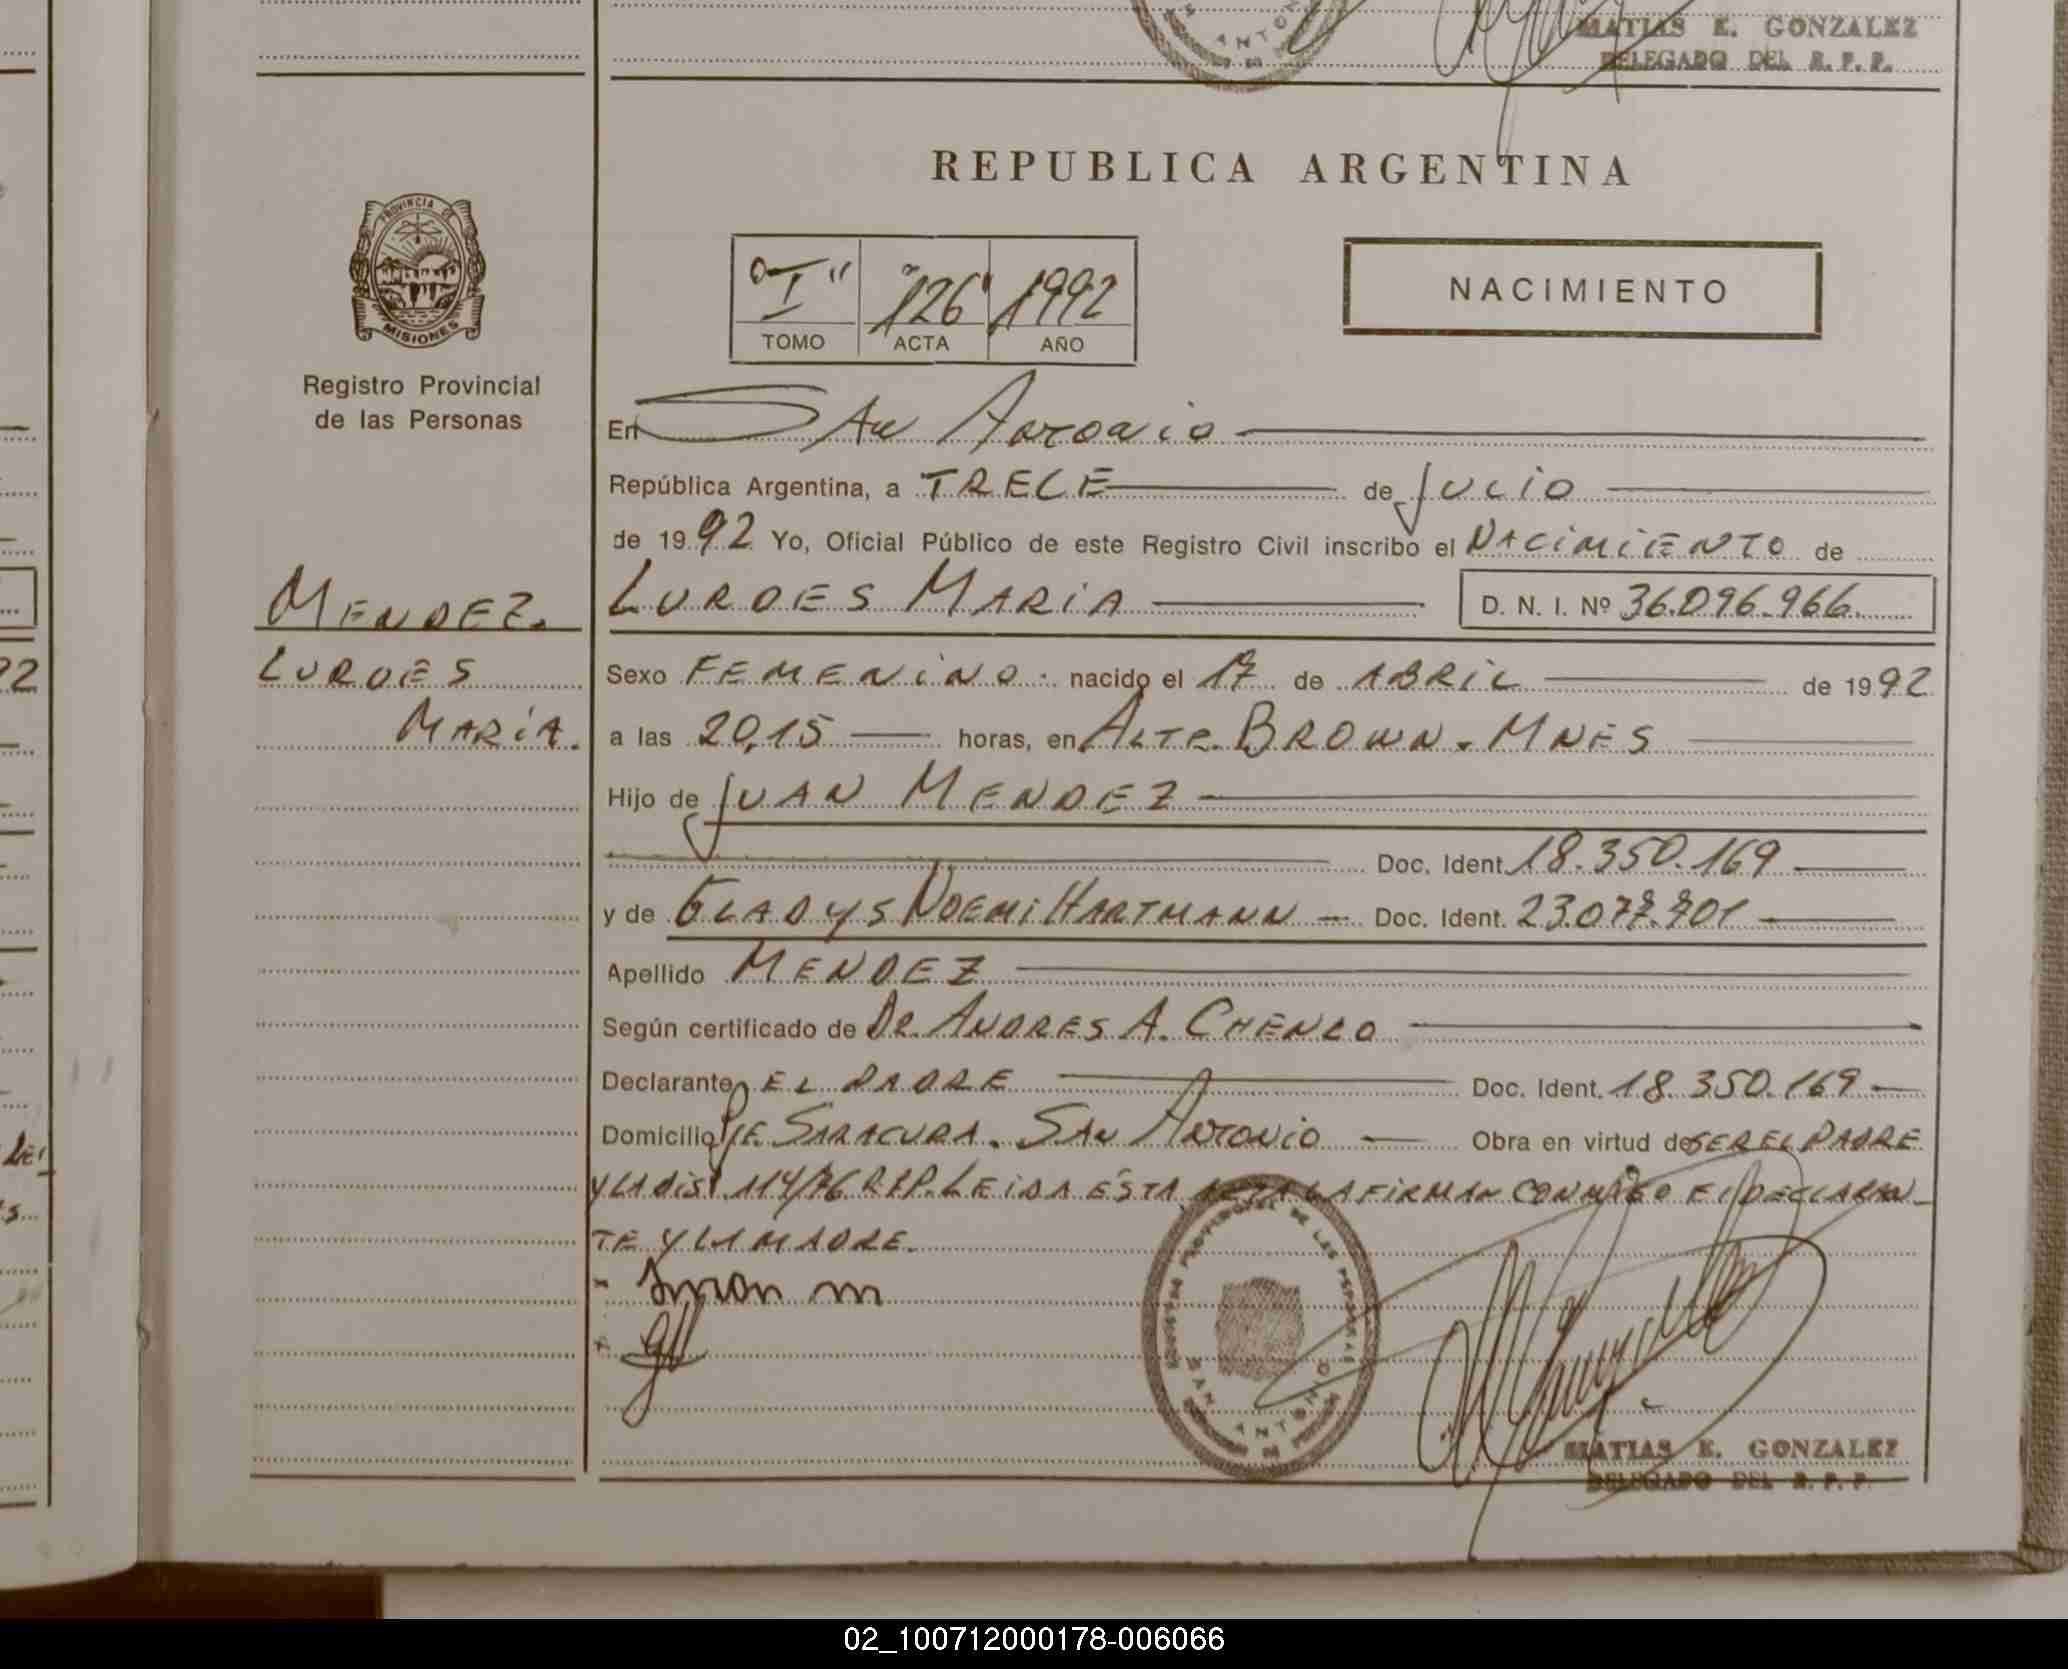 MATIAS E. GONZALEZ
DELEGADO DEL R. P. P.
REPUBLICA ARGENTINA
PROVINCIA DE
MISIONES
Registro Provincial
de las Personas
"I" "126" 1992
TOMO ACTA AÑO
NACIMIENTO
En San Antonio
República Argentina, a TRECE de JULIO
de 1992 Yo, Oficial Público de este Registro Civil inscribo el NACIMIENTO de
LURDES MARIA D. N. I. Nº 36.096.966.
MENDEZ.
LURDES
MARIA.
Sexo FEMENINO. nacido el 17 de ABRIL de 1992
a las 20,15 horas, en ALTE. BROWN. MNES
Hijo de JUAN MENDEZ
Doc. Ident. 18.350.169
y de GLADYS NOEMI HARTMANN Doc. Ident. 23.077.701
Apellido MENDEZ
Según certificado de DR. ANDRES A.
Declarante EL PADRE Doc. Ident. 18.350.169
Domicilio PJE. SARACURA. SAN ANTONIO Obra en virtud de SER EL PADRE
Y LA DIST. 114/76 R.P.P. LEIDA ESTA ACTA LA FIRMAN CONMIGO EL DECLARAN_
TE Y LA MADRE.
Juan m
REGISTRO PROVINCIAL DE LAS PERSONAS
SAN ANTONIO
MATIAS E. GONZALEZ
DELEGADO DEL R. P. P.
02_100712000178-006066